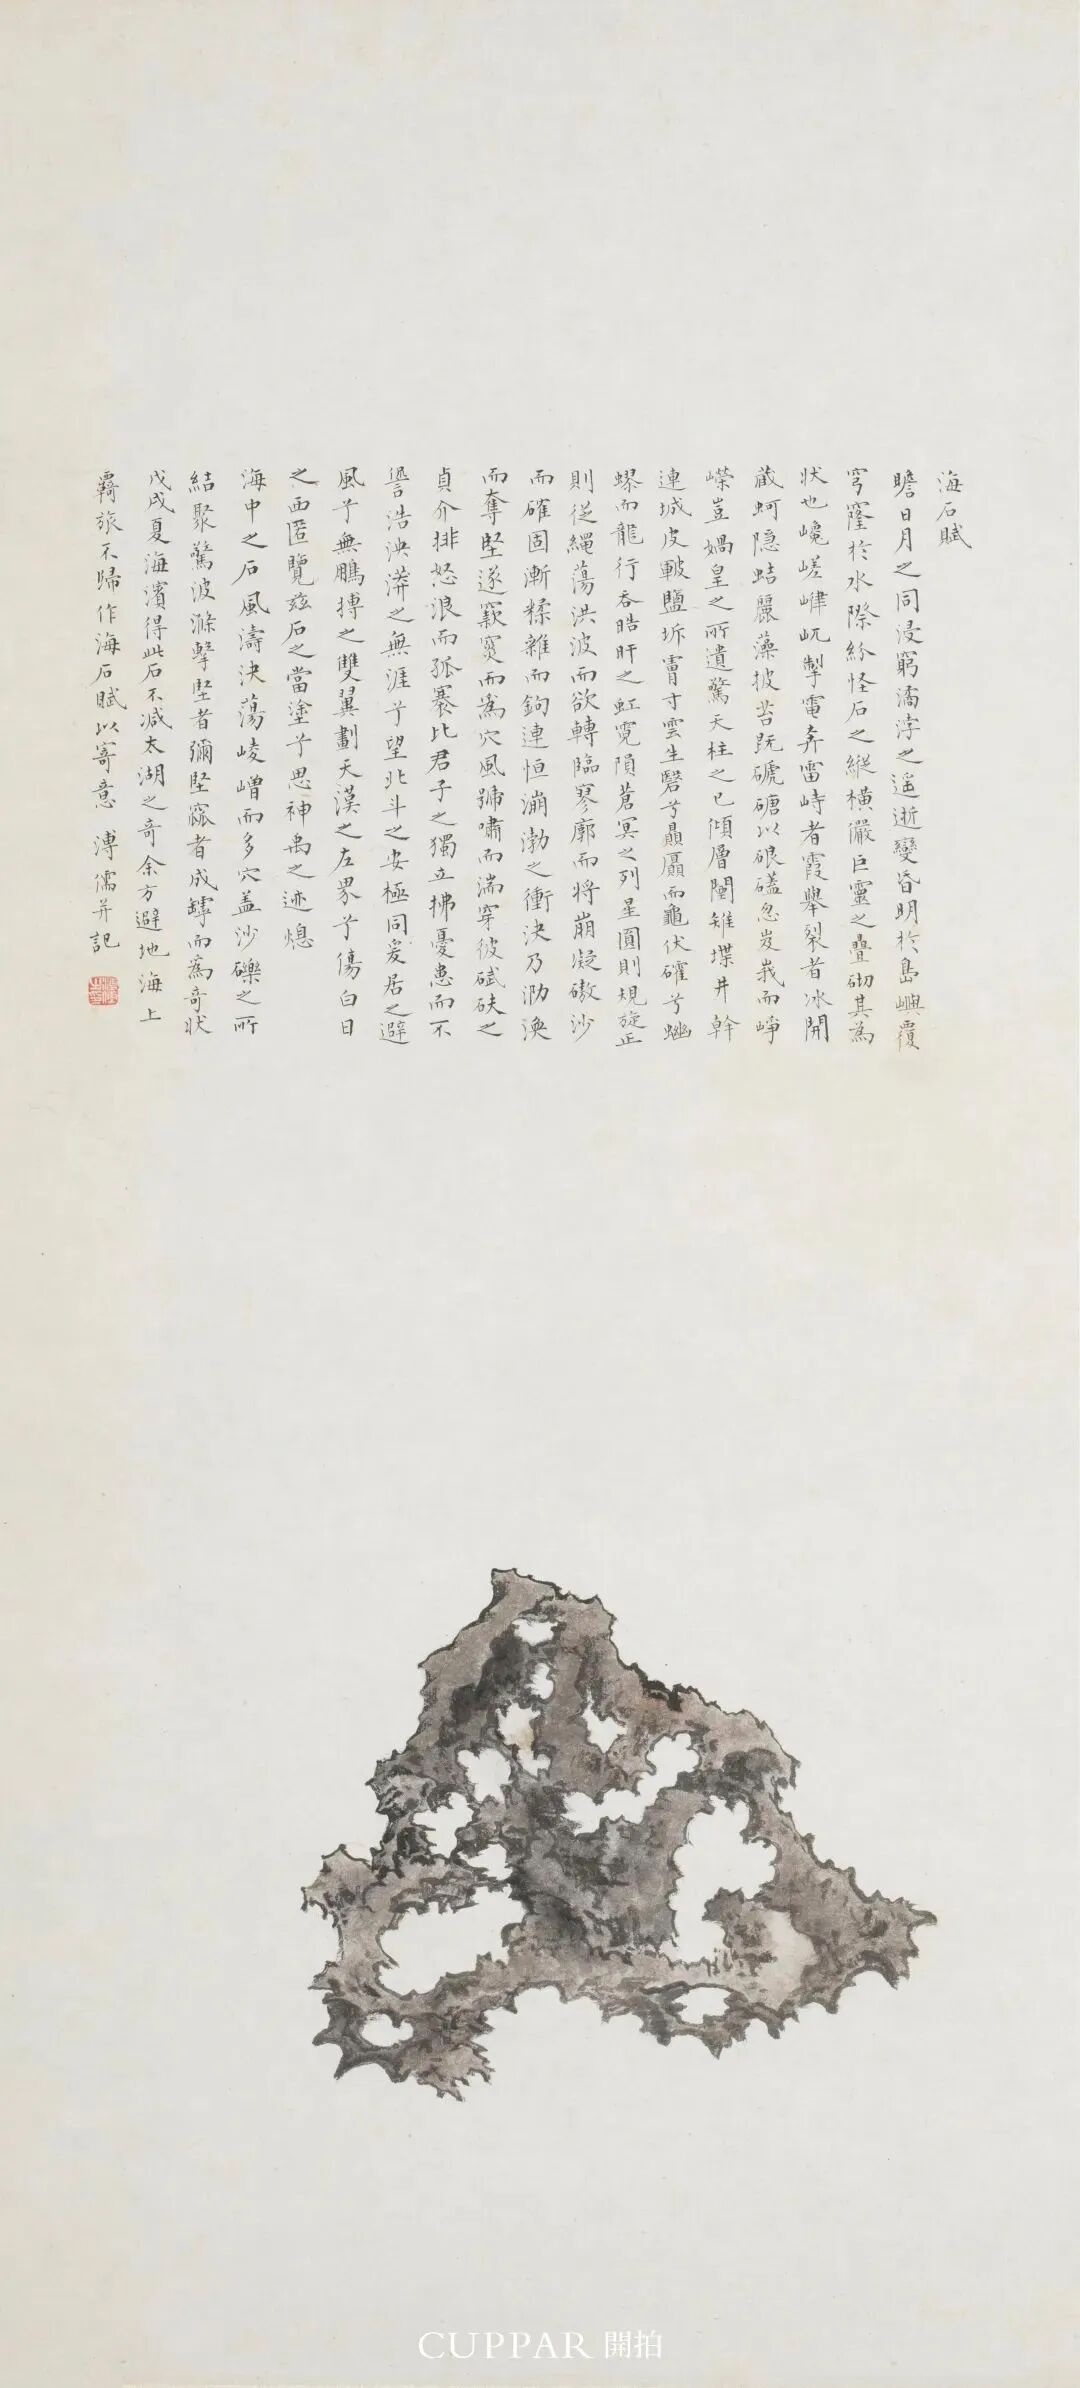 海石賦
瞻日月之同浸窮濤浡之遥逝變昏明於島嶼覆
穹窿於水際紛怪石之縱橫儼巨靈之疊砌其為
狀也巉嵯嵂屼掣電奔雷峙者霞舉裂者冰開
藏蚵隐蛣麗藻披苔既磃磄以硠礚忽岌峩而崢
嶸豈媧皇之所遺驚天柱之已傾層闉雉堞井幹
連城皮皸鹽坼膚寸雲生礐兮贔屭而龜伏礭兮蚴
蟉而龍行吞皓旰之虹霓隕蒼冥之列星圓則規旋正
則従繩蕩洪波而欲轉臨寥廓而將崩凝礉沙
而確固漸糅雜而鉤連恒漰渤之衝決乃泐渙
而奪堅遂竅窔而為穴風號嘯而湍穿彼碔砆之
貞介排怒浪而孤褰比君子之獨立拂憂患而不
諐浩泱漭之無涯兮望北斗之安極同爰居之避
風兮無鵬摶之雙翼劃天漢之左界兮傷白日
之西匿覽兹石之當塗兮思神禹之迹熄
海中之石風濤決蕩崚嶒而多穴盖沙礫之所
結聚驚波滌擊堅者彌堅窳者成罅而為奇狀
戊戌夏海濱得此石不减太湖之奇余方避地海上
羇旅不歸作海石賦以寄意 溥儒并記
CUPPAR 開拍